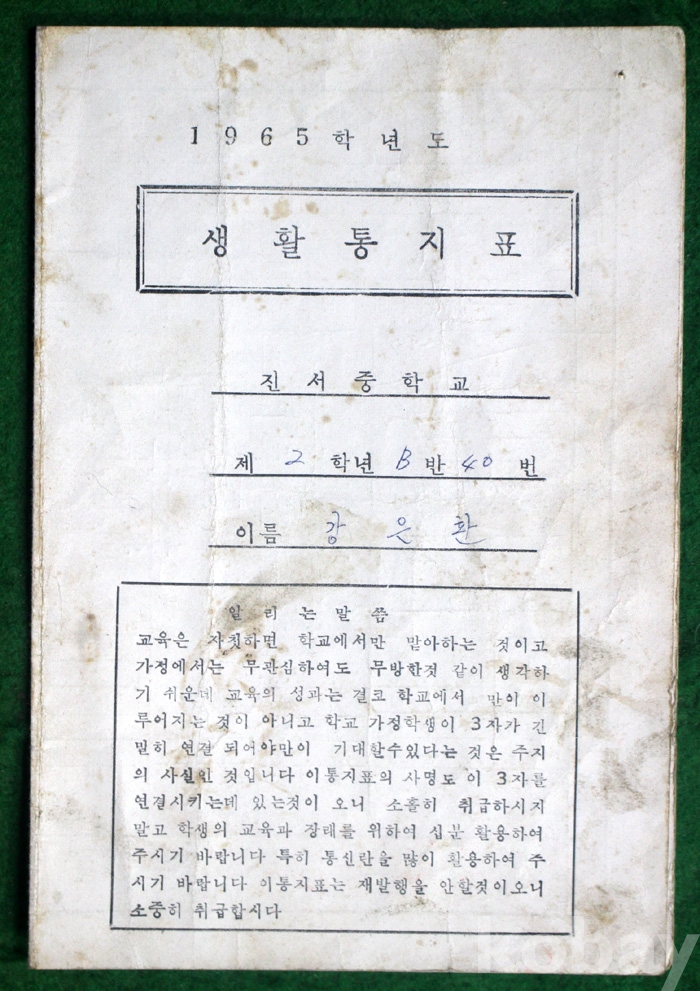 1965학년도
생활통지표
진서중학교
제 2 학년 B 반 40 번
이름 강은환
알리는말씀
교육은 자칫하면 학교에서만 맡아하는 것이고
가정에서는 무관심하여도 무방한것 같이 생각하
기 쉬운데 교육의 성과는 결코 학교에서 만이 이
루어지는 것이 아니고 학교 가정학생이 3자가 긴
밀히 연결 되어야만이 기대할수있다는 것은 주지
의 사실인 것입니다 이통지표의 사명도 이 3자를
연결시키는데 있는것이 오니 소홀히 취급하시지
말고 학생의 교육과 장래를 위하여 십분 활용하여
주시기 바랍니다 특히 통신란을 많이 활용하여 주
시기 바랍니다 이통지표는 재발행을 안할것이오니
소중히 취급합시다
kobay